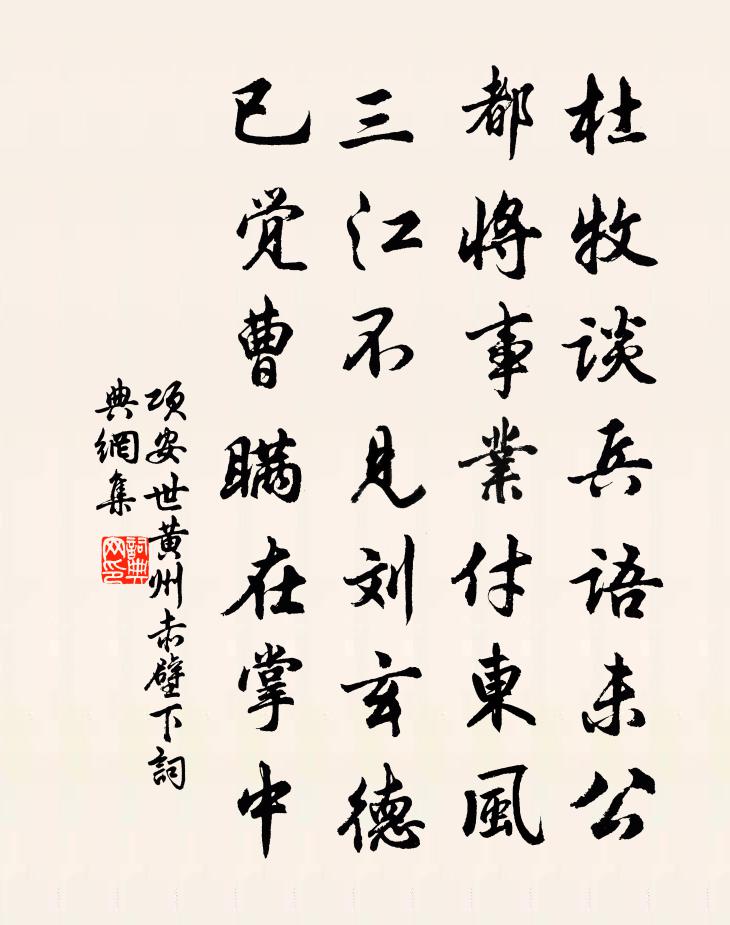 杜牧談兵語未公
都將事業付東風
三江不見刘玄德
已觉曹瞞在掌中
項安世黄州赤壁下詞
典網集
詞典
网印